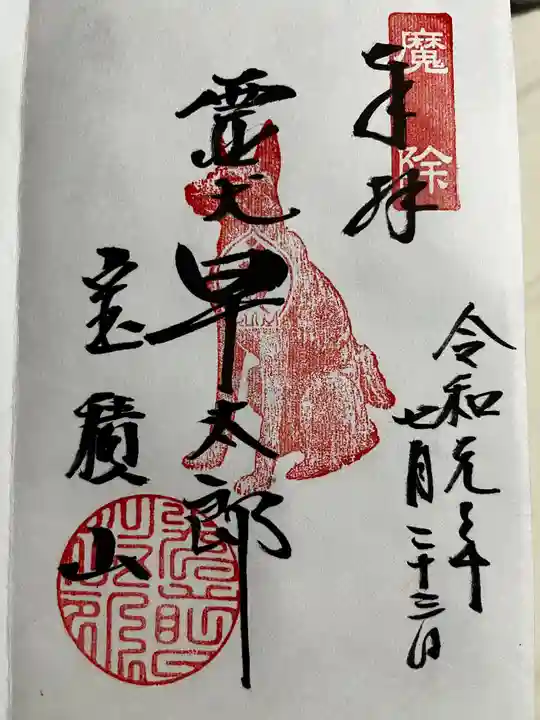 魔除
奉拝
令和元年
七月二十三日
霊犬早太郎
宝積山